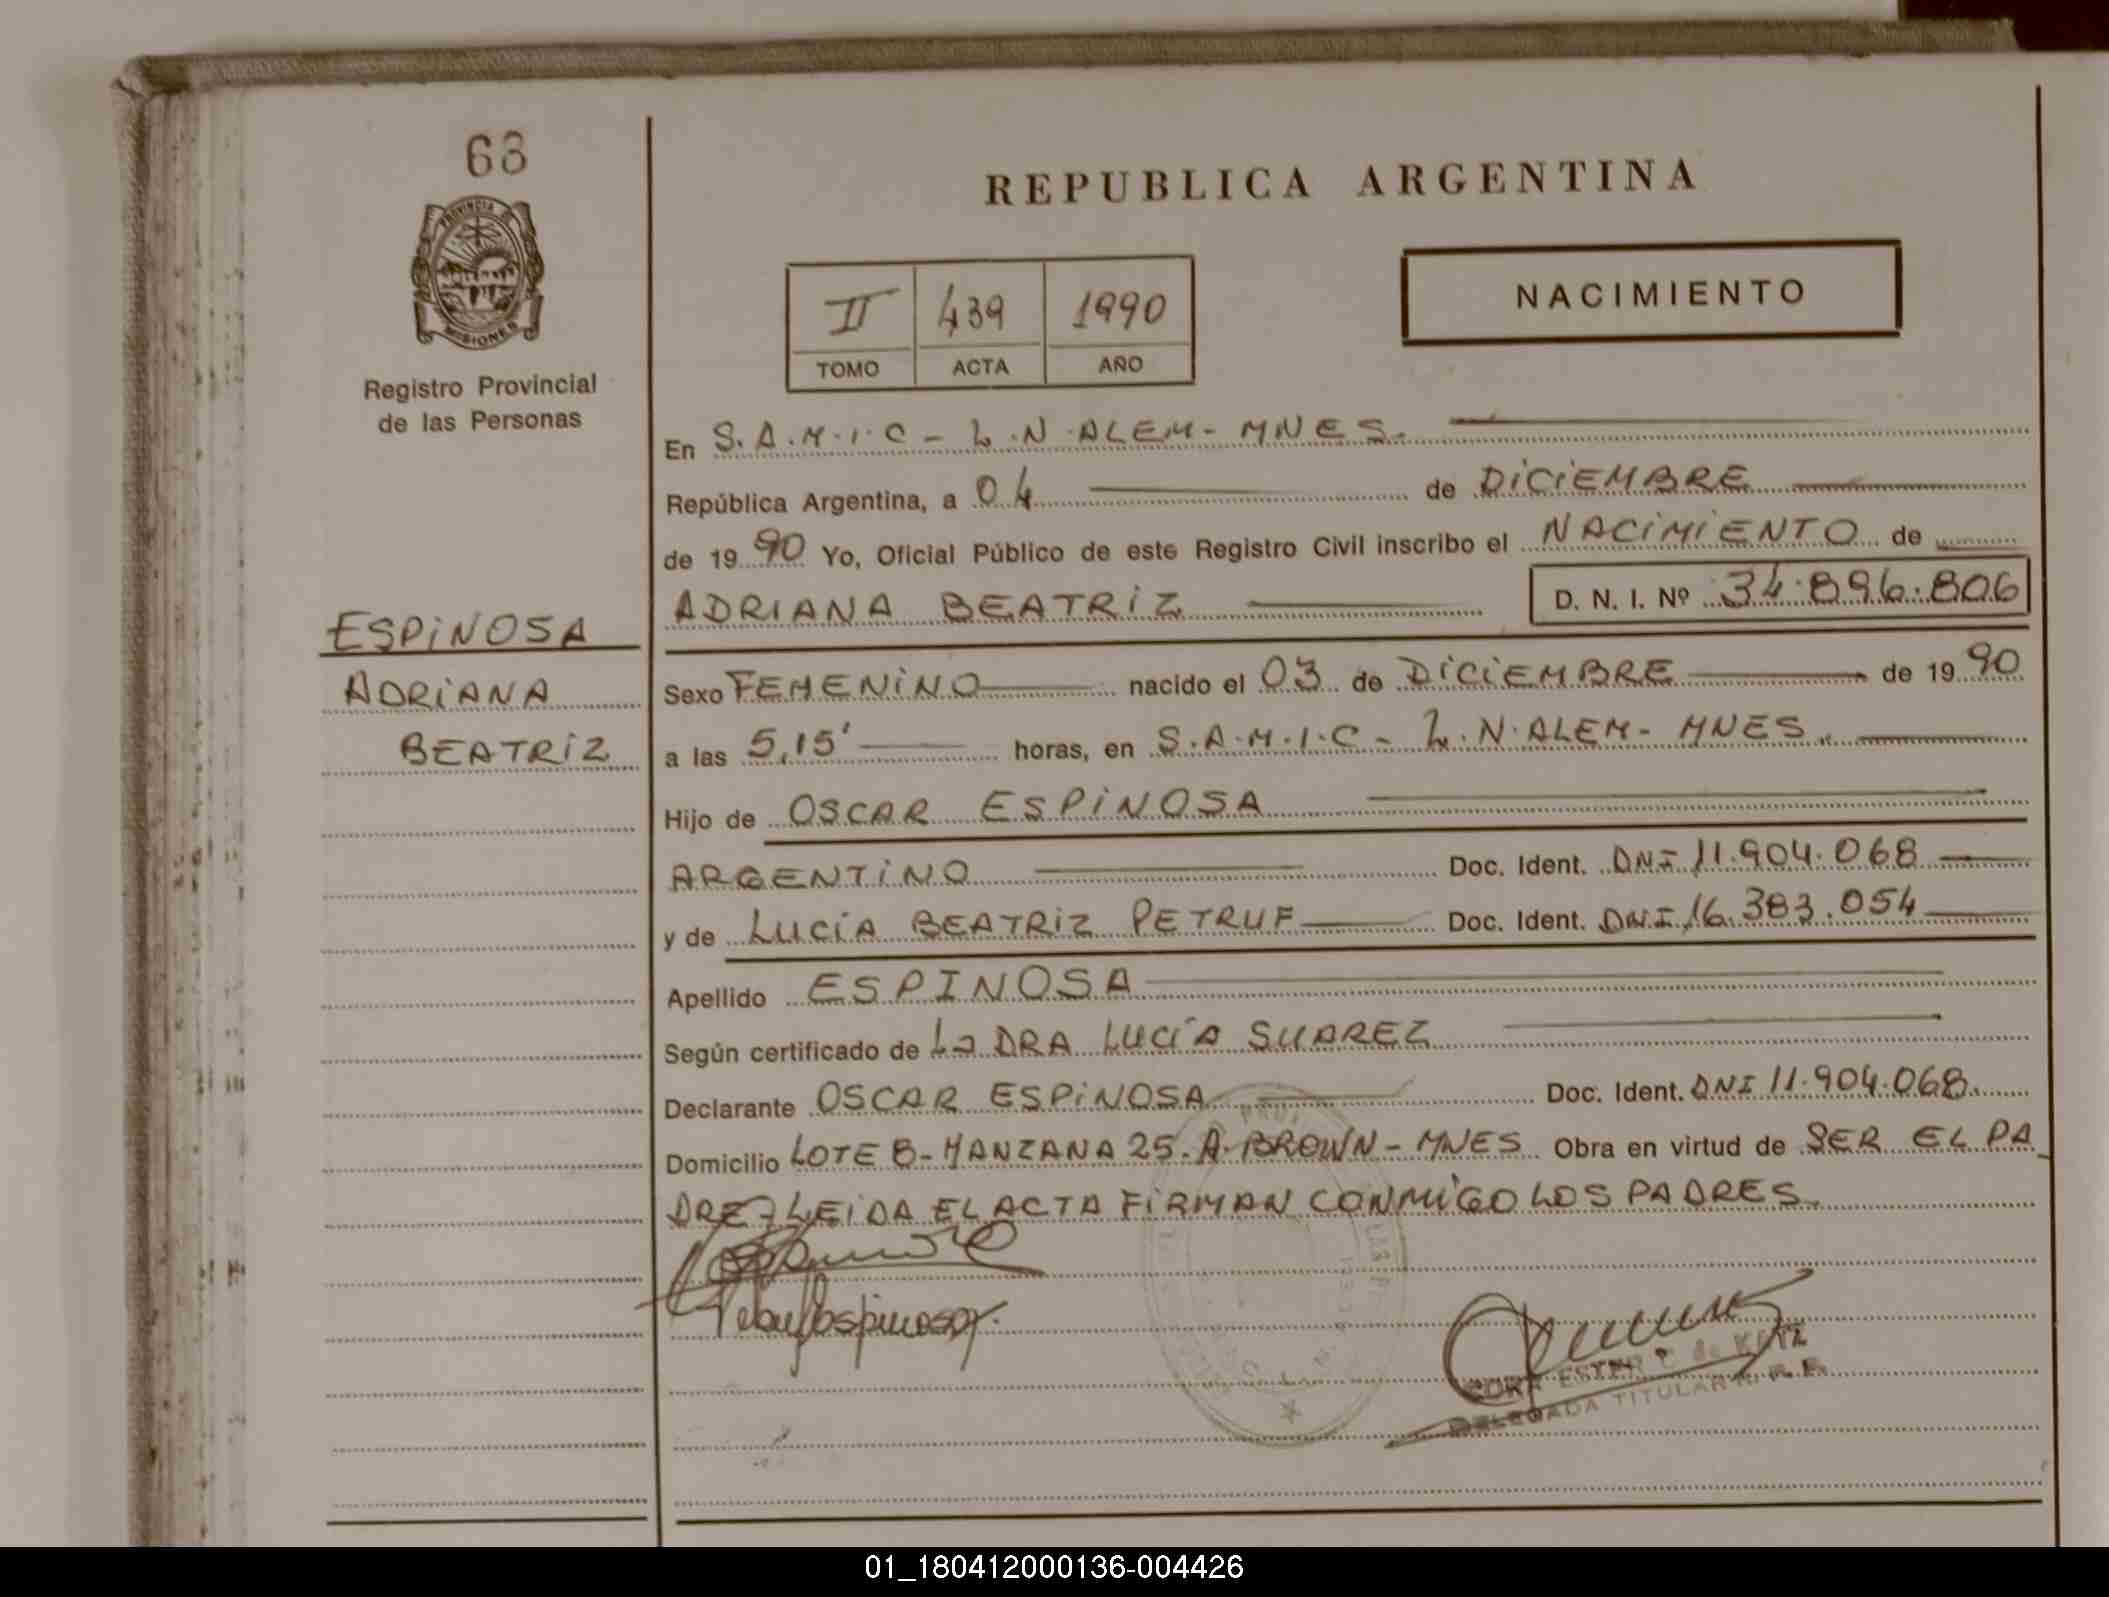 68
PROVINCIA DE
MISIONES
Registro Provincial
de las Personas
ESPINOSA
ADRIANA
BEATRIZ
REPUBLICA ARGENTINA
II 439 1990
TOMO ACTA AÑO
NACIMIENTO
En S.A.M.I.C - L.N.ALEM - MNES.
República Argentina, a 04 de DICIEMBRE
de 1990 Yo, Oficial Público de este Registro Civil inscribo el NACIMIENTO de
ADRIANA BEATRIZ D. N. I. Nº 34.896.806
Sexo FEMENINO nacido el 03 de DICIEMBRE de 1990
a las 5,15' horas, en S.A.M.I.C - L.N.ALEM - MNES.
Hijo de OSCAR ESPINOSA
ARGENTINO Doc. Ident. DNI 11.904.068
y de LUCÍA BEATRIZ PETRUF Doc. Ident. DNI 16.383.054
Apellido ESPINOSA
Según certificado de LA DRA LUCÍA SUAREZ
Declarante OSCAR ESPINOSA Doc. Ident. DNI 11.904.068.
Domicilio LOTE 8 - MANZANA 25. A. BROWN - MNES Obra en virtud de SER EL PA
DRE, LEIDA EL ACTA FIRMAN CONMIGO LOS PADRES.
ESTER C de
DELEGADA TITULAR
01_180412000136-004426